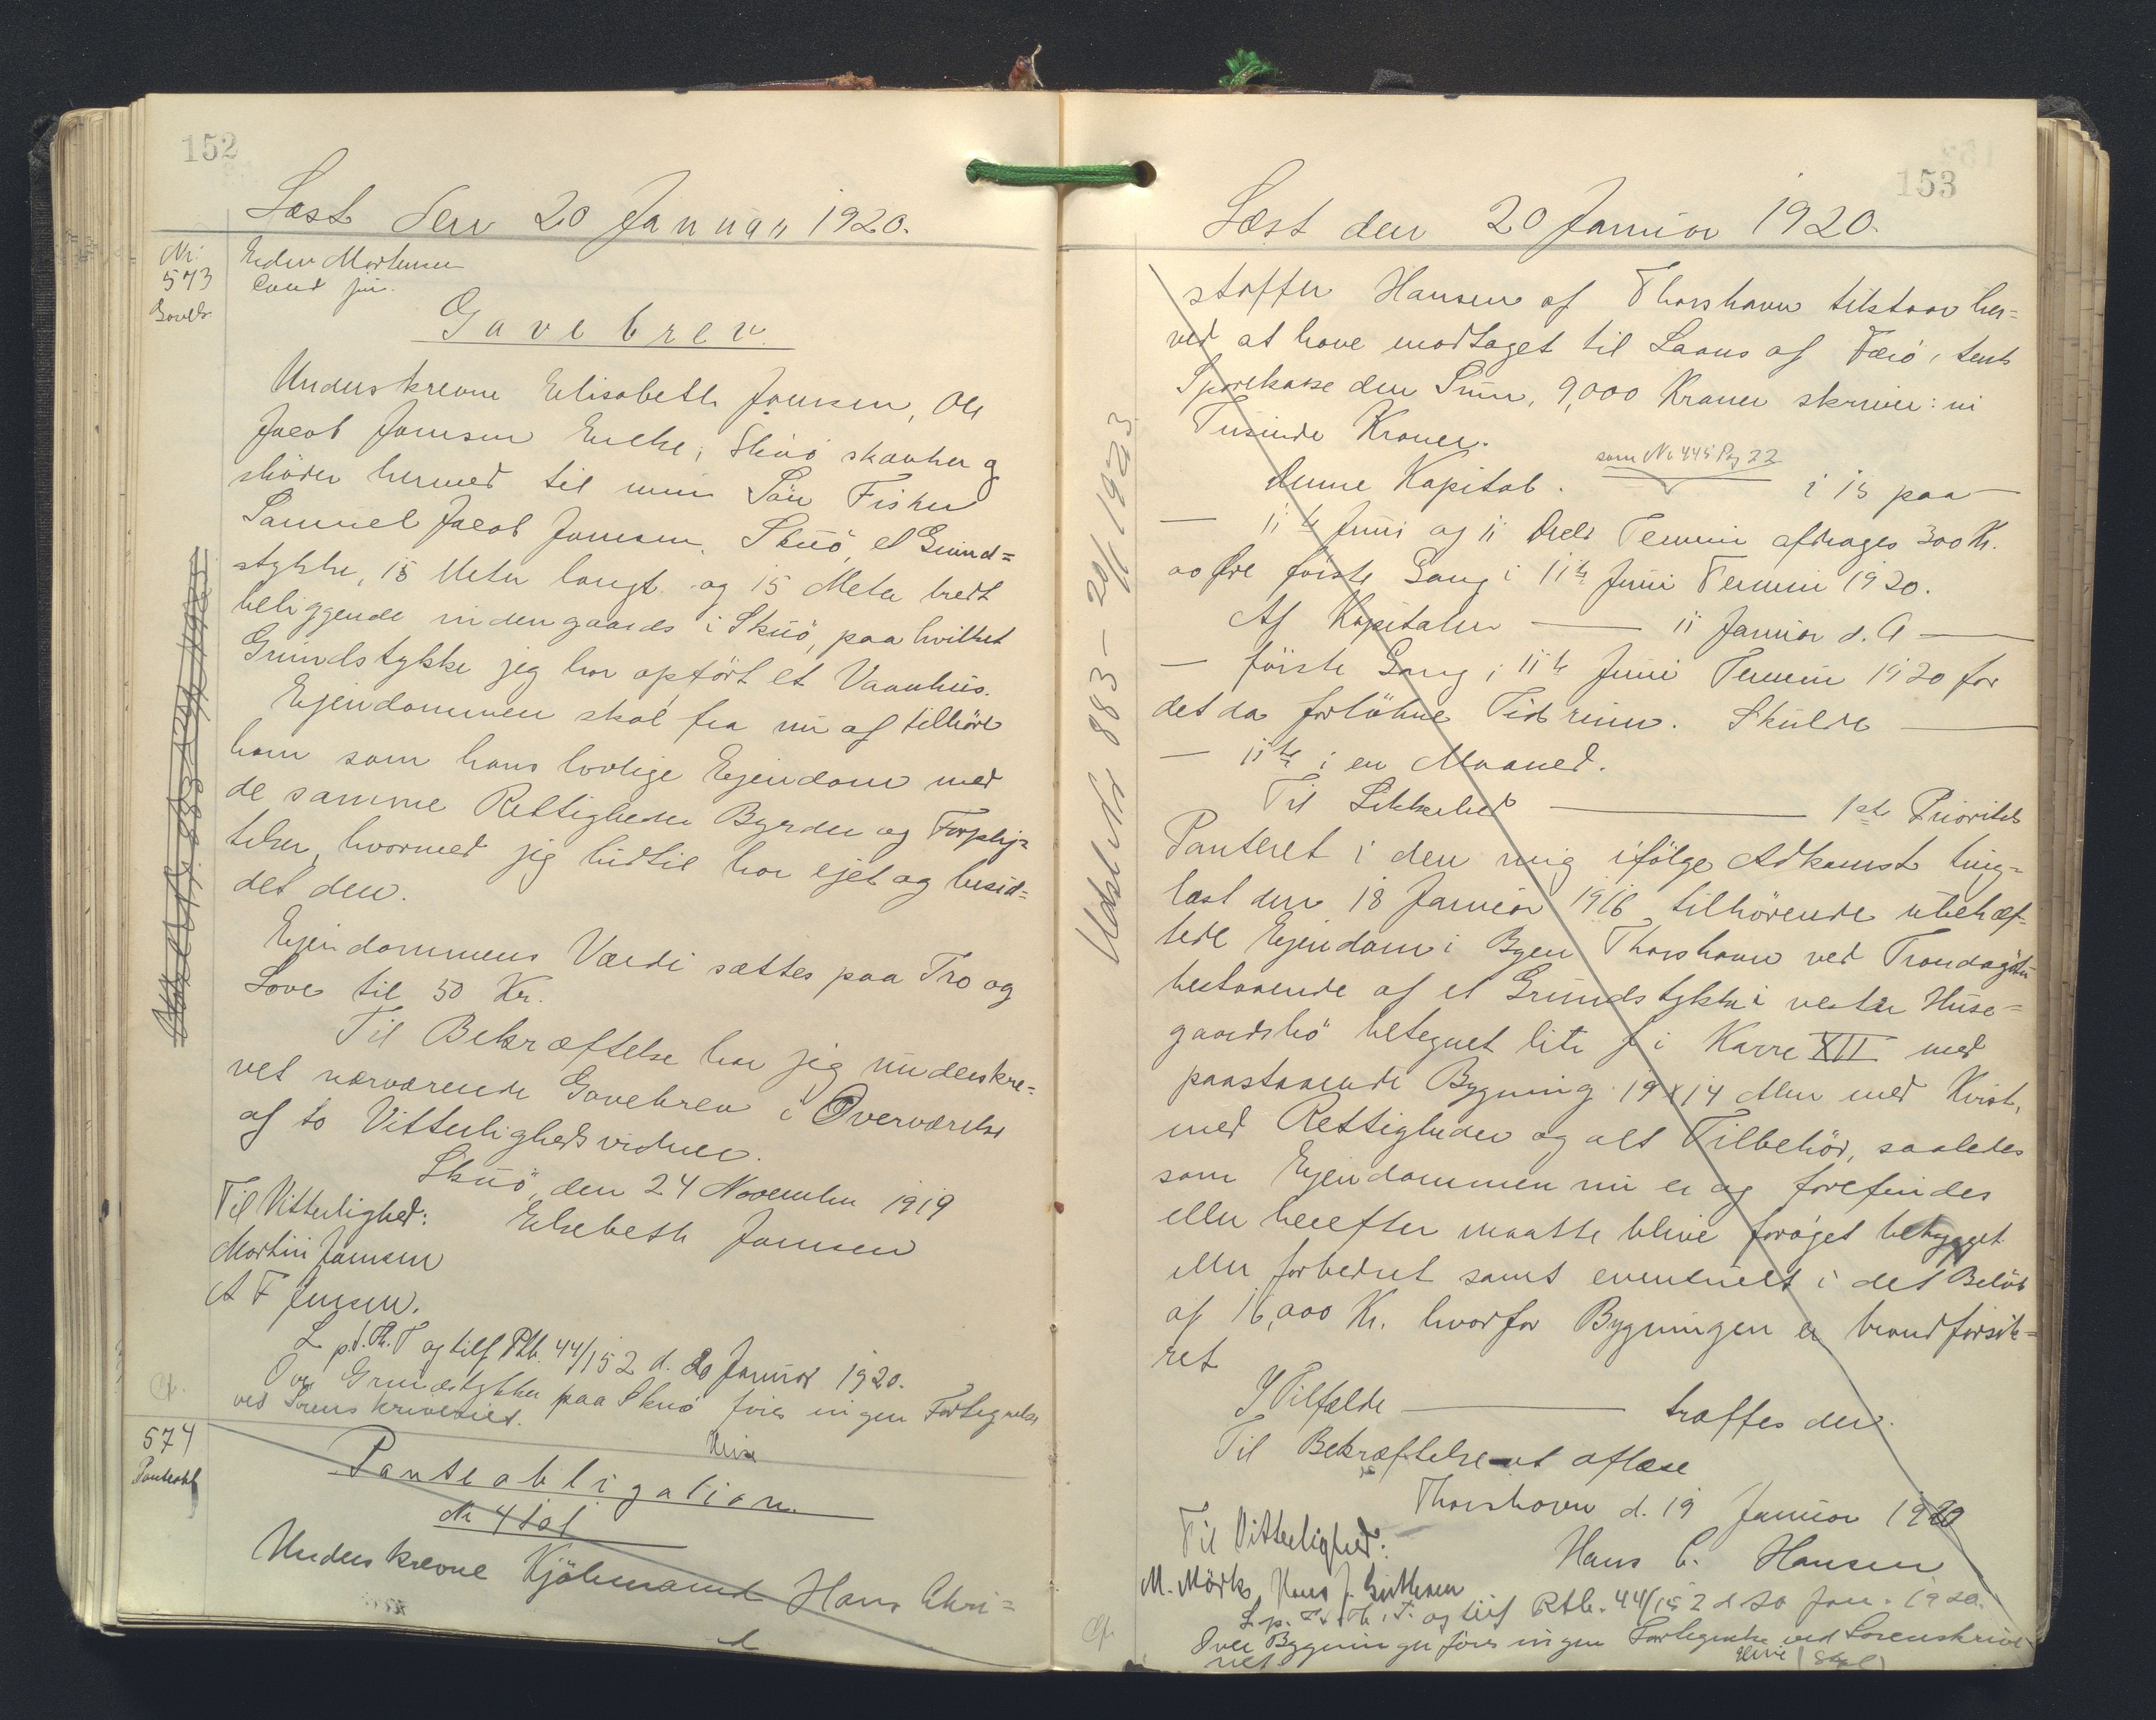 152
Læst den 20 Januar 1920.
Nr.
573
Mortensen
Gavebrev.
Underskrevne Elisabeth Joensen, Ole
Jacob Joensens Enke, Skuö skænker og
skøder hermed til min Sön Fisker
Samuel Jacob Joensen, Skuö, et Grund=
stykke, 15 Meter langt og 15 Meter bredt
beliggende indengaards i Skuö, paa hvilket
Grundstykke jeg har opfört et Vaanhus.
Ejendommen skal fra nu af tilhöre
ham som hans lovlige Ejendom med
de samme Rettigheder Byrder og Forplig=
telser, hvormed jeg hidtil har ejet og besid=
det den.
Ejendommens Værdi sættes paa Tro og
Love til 50 Kr.
Til Bekræftelse har jeg underskre=
vet nærværende Gavebrev i Overværelse
af to Vitterlighedsvidner.
Skuö, den 24 November 1919
Til Vitterlighed: Elsebeth Joensen
Martin Joensen
A F Jensen.
L. p. d. Th. T og tilf Ptb. 44/152 d. 20 Januar 1920.
Over Grundstykker paa Skuö föres ingen Fortegnelse
ved Sorenskriveriet.
574
Panteobl
Panteobligation.
Underskrevne Kjöbmand Hans Chri=
153
Læst den 20 Januar 1920.
stoffer Hansen af Thorshavn tilstaar her=
ved at have modtaget til Laans af Færö, tents
Sparekasse den Sum, 9,000 Kroner skriver: ni
Tusinde Kroner.
som No 445 Pag 22
Denne Kapital. i 15 paa —
— 11te Juni og 11 Decbr Termin afdrages 300 Kr.
00 Øre förste Gang i 11te Juni Termin 1920.
Af Kapitalen — 11 Januar d. A —
— förste Gang i 11te Juni Termin 1920 for
det da forløbne Tidsrum. Skulde —
— 11te i en Maaned.
Til Sikkerhed — 1ste Prioritets
Panteret i den mig ifölge Adkomst ting=
læst den 18 Januar 1916 tilhörende ubehæf=
tede Ejendom i Byen Thorshavn ved
bestaaende af et Grundstykke i vestre Huse=
gaardsbö betegnet litr f i Karre XII med
paastaaende Bygning 19 x 14 Alen med Kvist,
med Rettigheder og alt Tilbehör, saaledes
som Ejendommen nu er og forefindes
eller herefter maatte blive foröget bebygget
eller forbedret samt eventuelt i det Belöb
af 16,000 Kr. hvorfor Bygningen er brandforsik=
ret
I Tilfælde — træffes den.
Til Bekræftelse at aflæse
Thorshavn d. 19 Januar 1920
Til Vitterlighed: Hans C. Hansen
M. Mörk, Hans J.
L. p. og tilf Ptb. 44/152 d 20 Jan. 1920.
Over Bygninger föres ingen Fortegnelse ved Sorenskrive
riet
Udslettet 883 - 20/1 1923